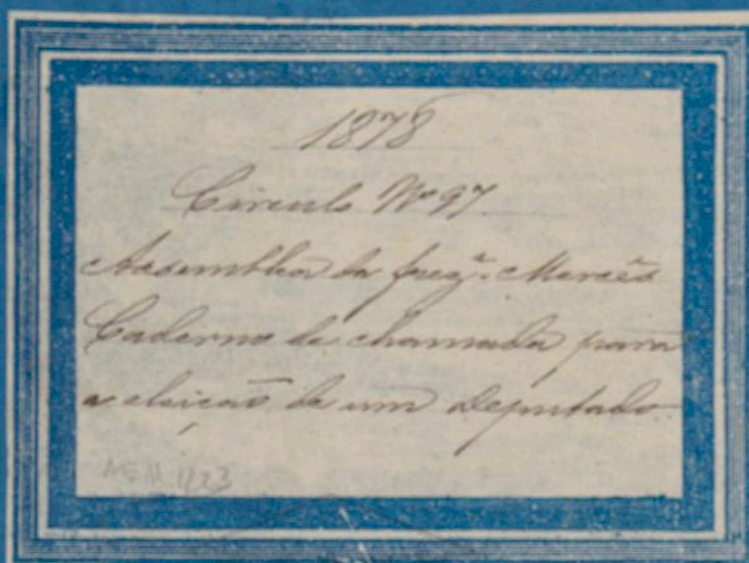 1878
Circulo Nº 97
Assemblea da freg.ª Mercês
Caderno de chamada para
a eleição de um Deputado.